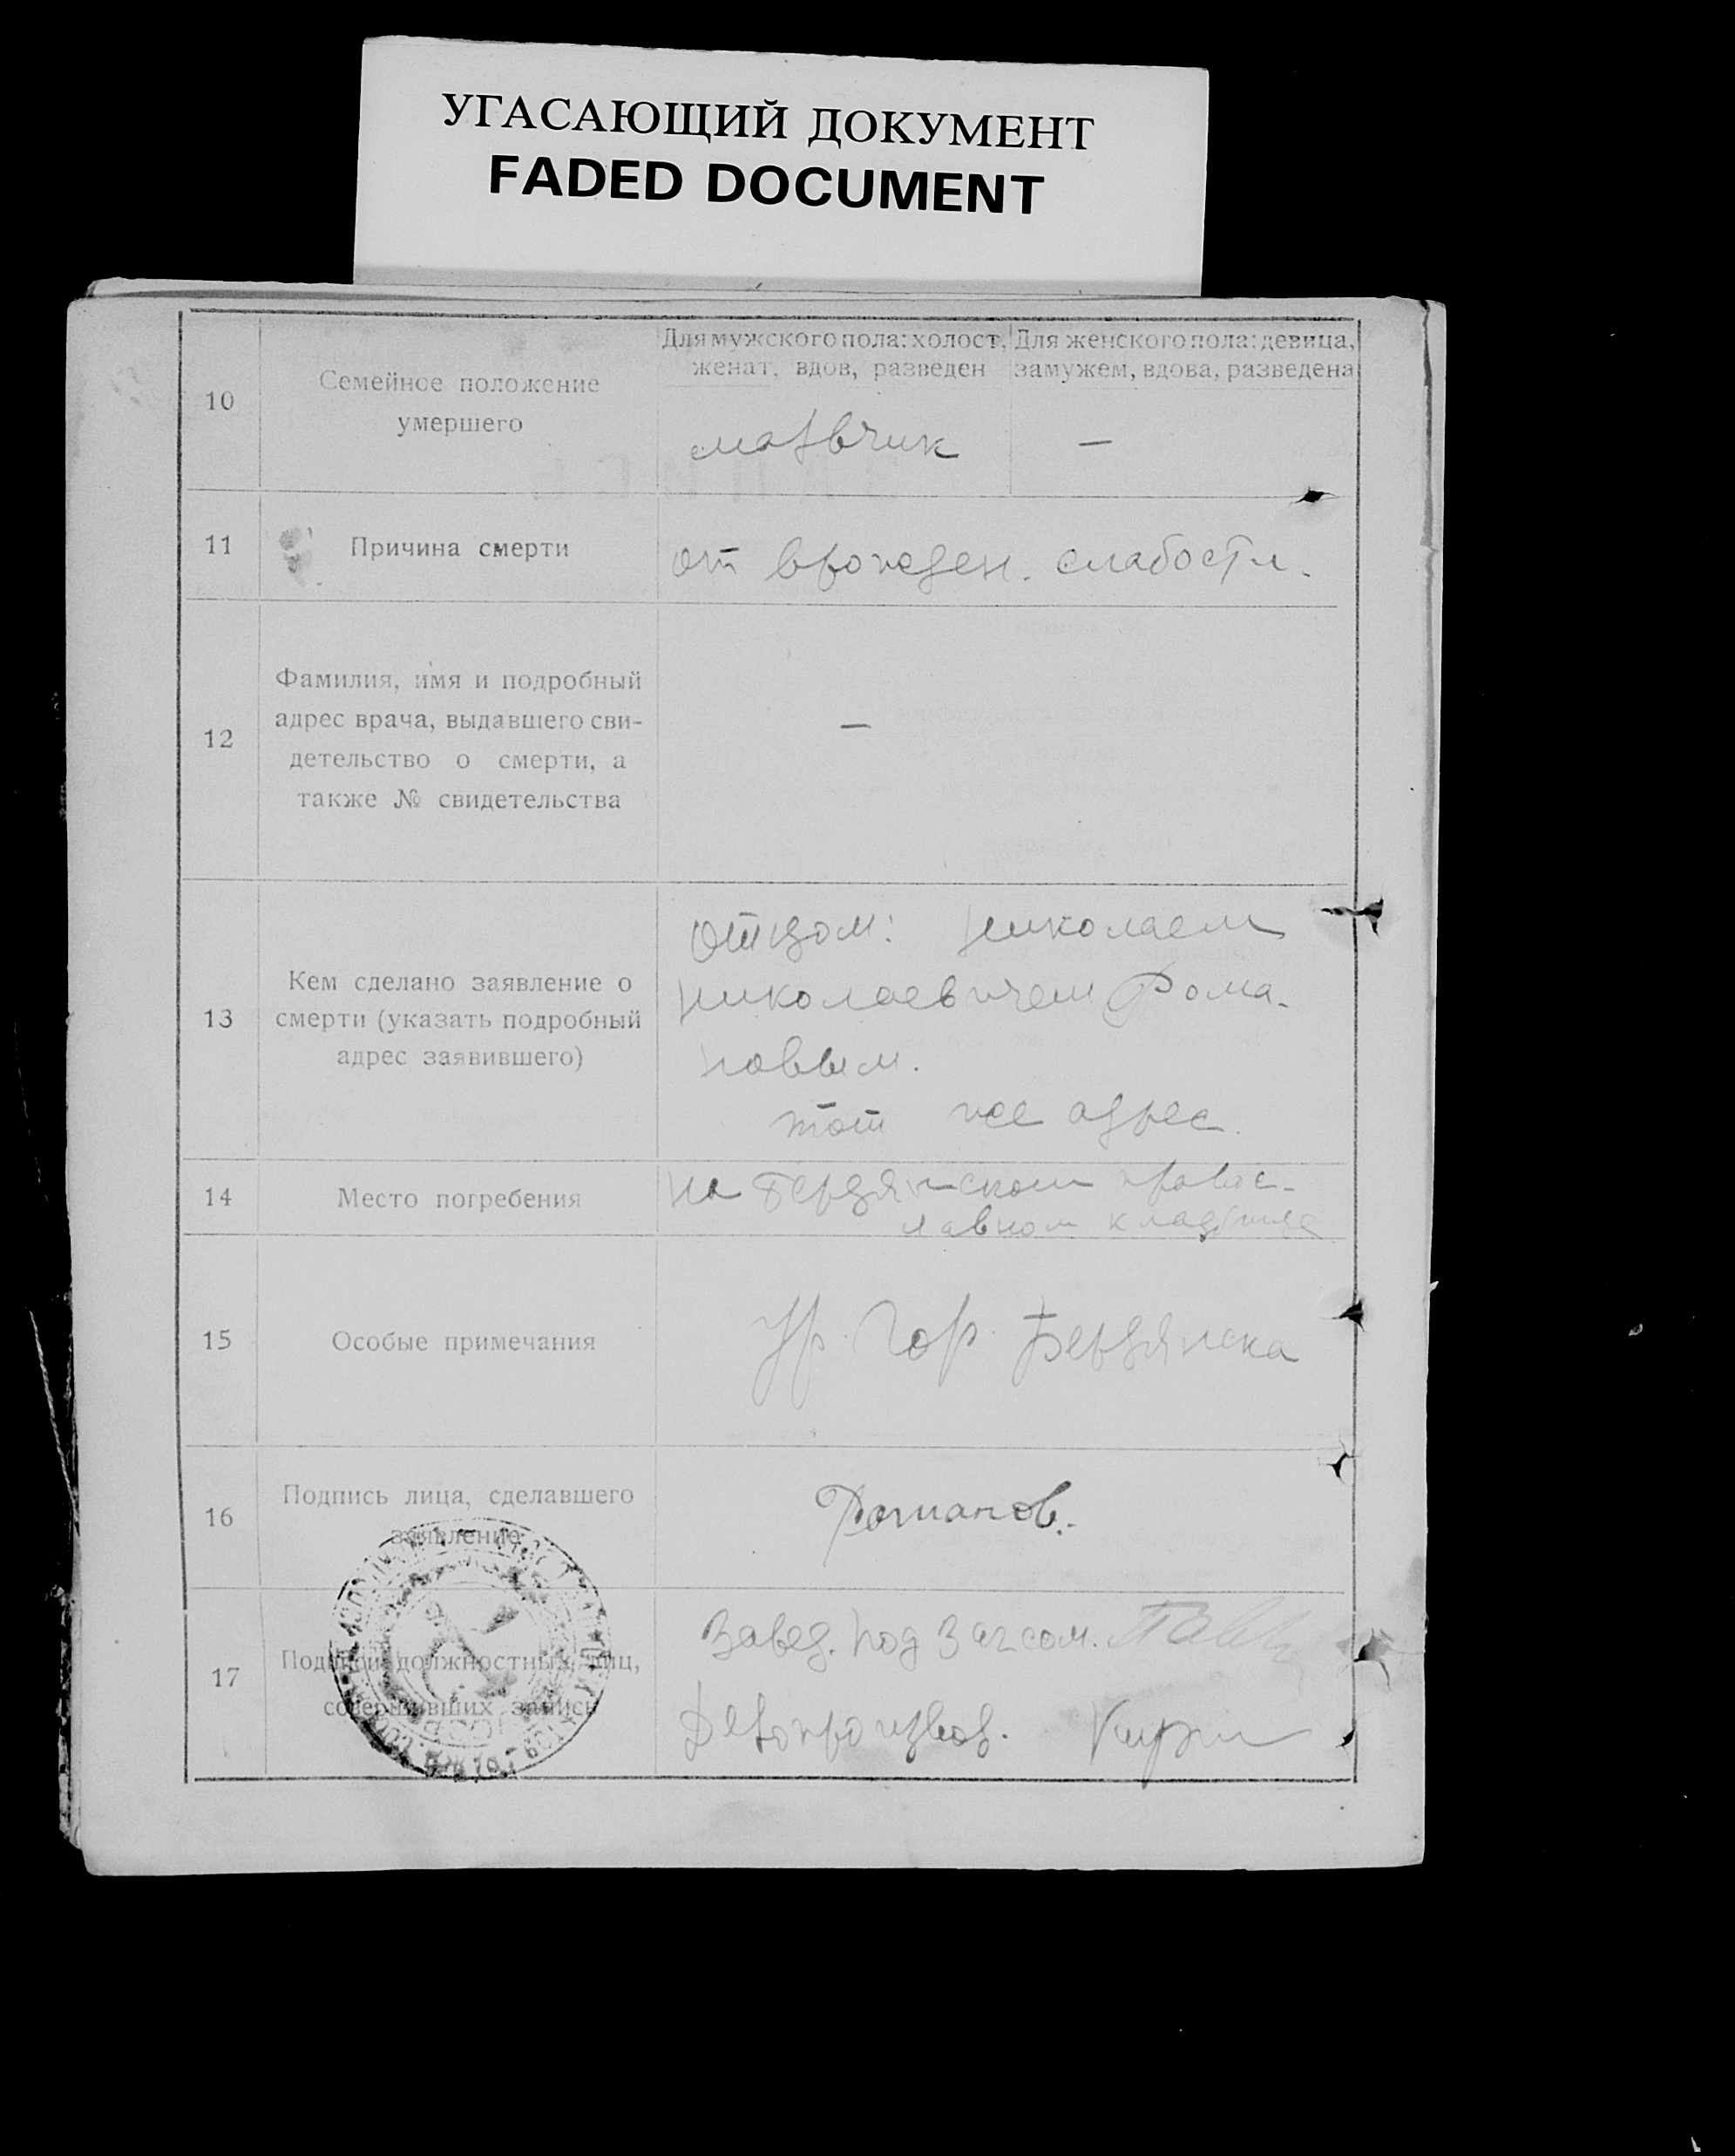 УГАСАЮЩИЙ ДОКУМЕНТ
FADED DOCUMENT
10
Семейное положение
умершего
Для мужского пола: холост,
женат, вдов, разведен
Для женского пола: девица,
замужем, вдова, разведена
мальчик
—
11
Причина смерти
от врожден. слабости.
12
Фамилия, имя и подробный
адрес врача, выдавшего сви-
детельство о смерти, а
также № свидетельства
—
13
Кем сделано заявление о
смерти (указать подробный
адрес заявившего)
отцом: Николаем
Николаевичем Рома-
новым.
тот же адрес.
14
Место погребения
на Бердянском правос-
лавном кладбище
15
Особые примечания
Ур. гор. Бердянска
16
Подпись лица, сделавшего
заявление
Романов.
17
Подписи должностных лиц,
совершивших запись
Завед. под Загсом.
Делопроизвод.